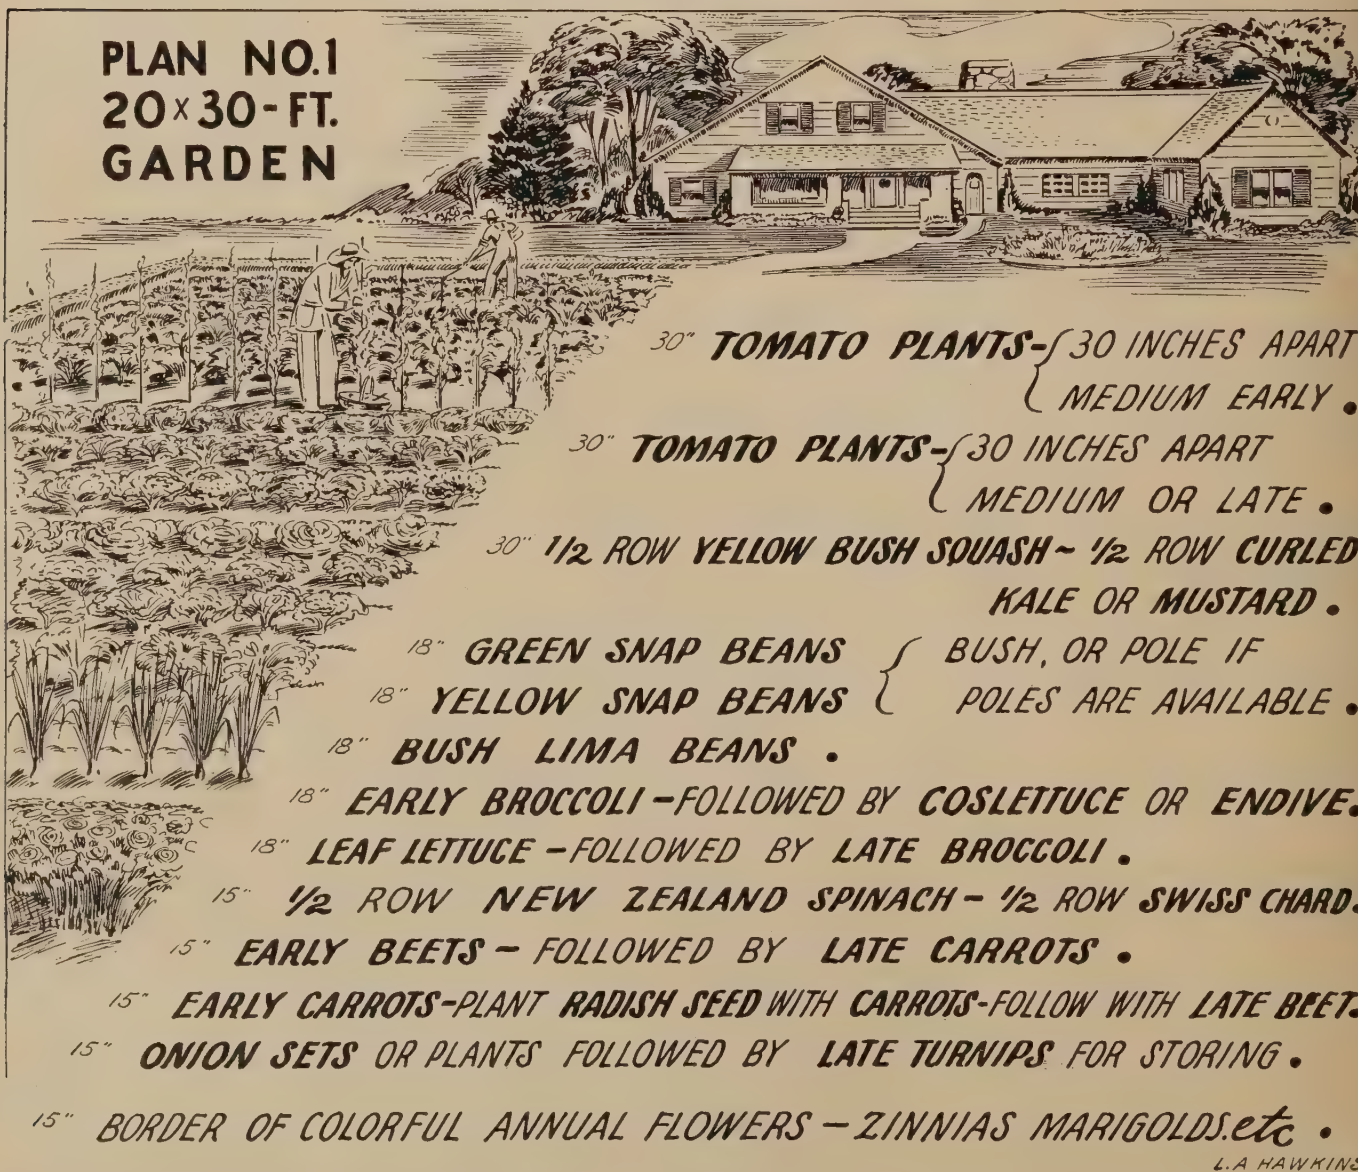 PLAN NO.1
20 x 30-FT.
GARDEN
30" TOMATO PLANTS- { 30 INCHES APART
MEDIUM EARLY.
30" TOMATO PLANTS- { 30 INCHES APART
MEDIUM OR LATE.
30" 1/2 ROW YELLOW BUSH SQUASH ~ 1/2 ROW CURLED
KALE OR MUSTARD.
18" GREEN SNAP BEANS { BUSH, OR POLE IF
18" YELLOW SNAP BEANS POLES ARE AVAILABLE.
18" BUSH LIMA BEANS.
18" EARLY BROCCOLI - FOLLOWED BY COSLETTUCE OR ENDIVE.
18" LEAF LETTUCE - FOLLOWED BY LATE BROCCOLI.
15" 1/2 ROW NEW ZEALAND SPINACH - 1/2 ROW SWISS CHARD.
15" EARLY BEETS - FOLLOWED BY LATE CARROTS.
15" EARLY CARROTS-PLANT RADISH SEED WITH CARROTS-FOLLOW WITH LATE BEET
15" ONION SETS OR PLANTS FOLLOWED BY LATE TURNIPS FOR STORING.
15" BORDER OF COLORFUL ANNUAL FLOWERS - ZINNIAS MARIGOLDS.etc.
L.A HAWKINS